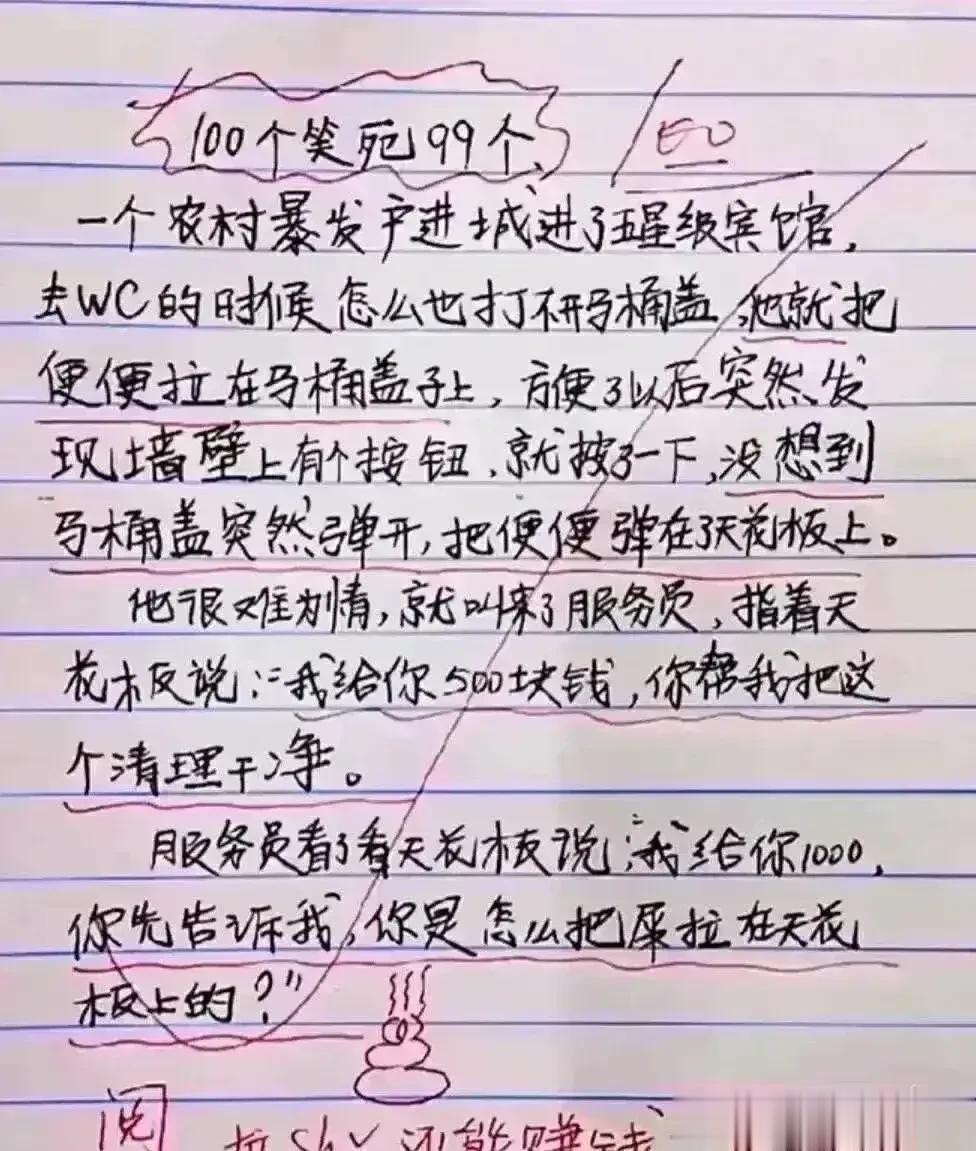 100个笑死99个、
一个农村暴发户进城进了五星级宾馆，
去WC的时候怎么也打不开马桶盖，他就把
便便拉在马桶盖子上，方便了以后突然发
现墙壁上有个按钮，就按了一下，没想到
马桶盖突然弹开，把便便弹在了天花板上。
他很难为情，就叫来了服务员，指着天
花板说："我给你500块钱，你帮我把这
个清理干净。
服务员看了看天花板说："我给你1000，
你先告诉我，你是怎么把屎拉在天花
板上的？"
阅
拉shǐ还能赚钱